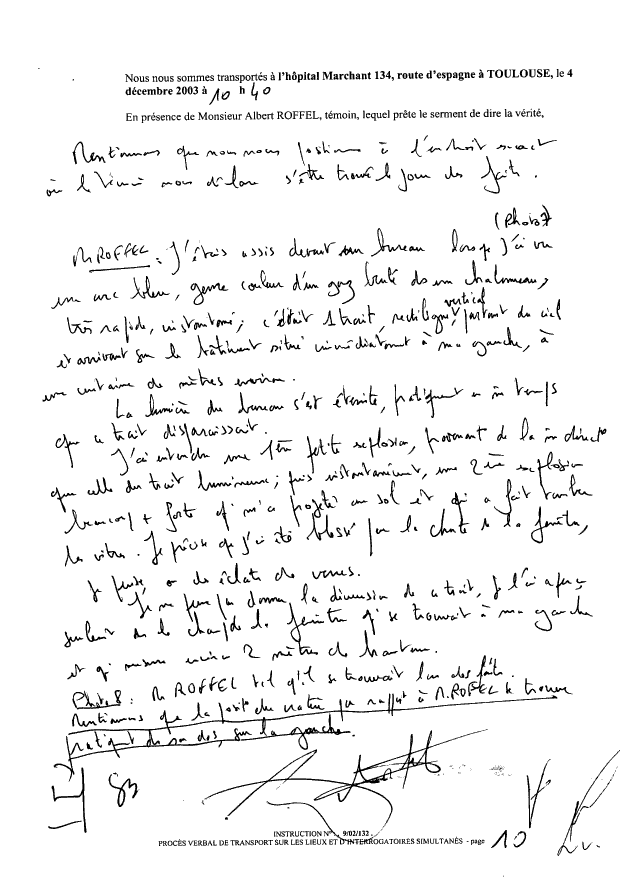 Nous nous sommes transportés à l'hôpital Marchant 134, route d'espagne à TOULOUSE, le 4
décembre 2003 à 10 h 40
En présence de Monsieur Albert ROFFEL, témoin, lequel prête le serment de dire la vérité,
Mentionnons que nous nous positionnons à l'endroit exact
où le témoin nous déclare s'être trouvé le jour des faits.
(Photo 7
M. ROFFEL : J'étais assis devant mon bureau lorsque j'ai vu
un arc bleu, genre couleur d'un gaz brulé ds un chalumeau,
très rapide, instantané ; c'était 1 trait, rectiligne, vertical, partant du ciel
et arrivant sur le bâtiment situé immédiatement à ma gauche, à
une centaine de mètres environ.
La lumière du bureau s'est éteinte, pratiquemt en m temps
que ce trait disparaissait.
J'ai entendu une 1ère petite explosion, provenant de la m directo
que celle du trait lumineux ; puis instantanément, une 2ème explosion
beaucoup + forte qui m'a projeté au sol et qui a fait tomber
les vitres. Je précise que j'ai été blessé par la chute de la fenêtre,
je pense, ou des éclats de verres.
Je ne peux pas donner la dimension de ce trait, je l'ai aperçu
seulemt ds le champ de la fenêtre qui se trouvait à ma gauche
et qui mesure environ 2 mètres de hauteur.
Photo 8 : M ROFFEL tel qu'il se trouvait lors des faits.
Mentionnons que la porte du par rapport à M. ROFFEL se trouve
pratiqt ds son dos, sur la gauche.
INSTRUCTION N° 9/02/132
PROCÈS VERBAL DE TRANSPORT SUR LES LIEUX ET D'INTERROGATOIRES SIMULTANÉS - page 10